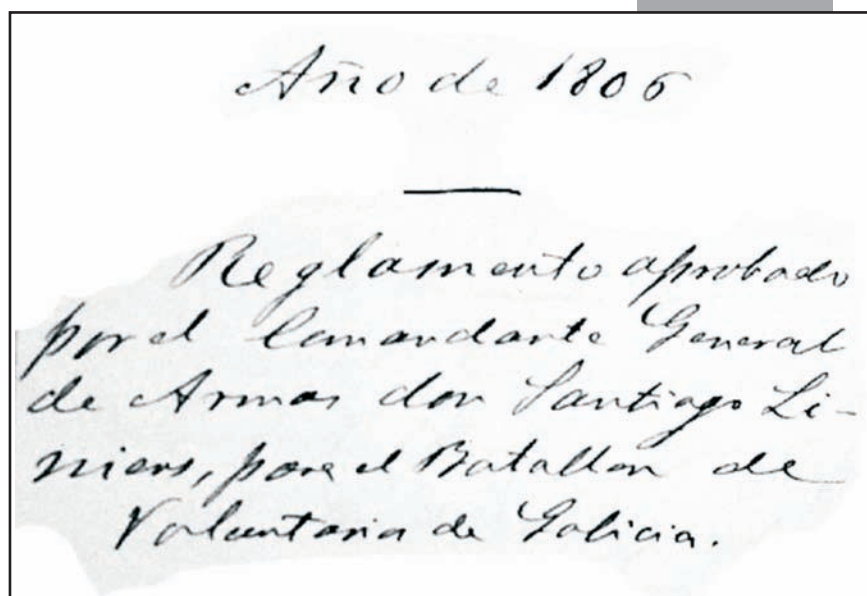 Año de 1806
Reglamento aprobado
por el Comandante General
de Armas don Santiago Li-
niers, para el Batallon de
Voluntaria de Galicia.